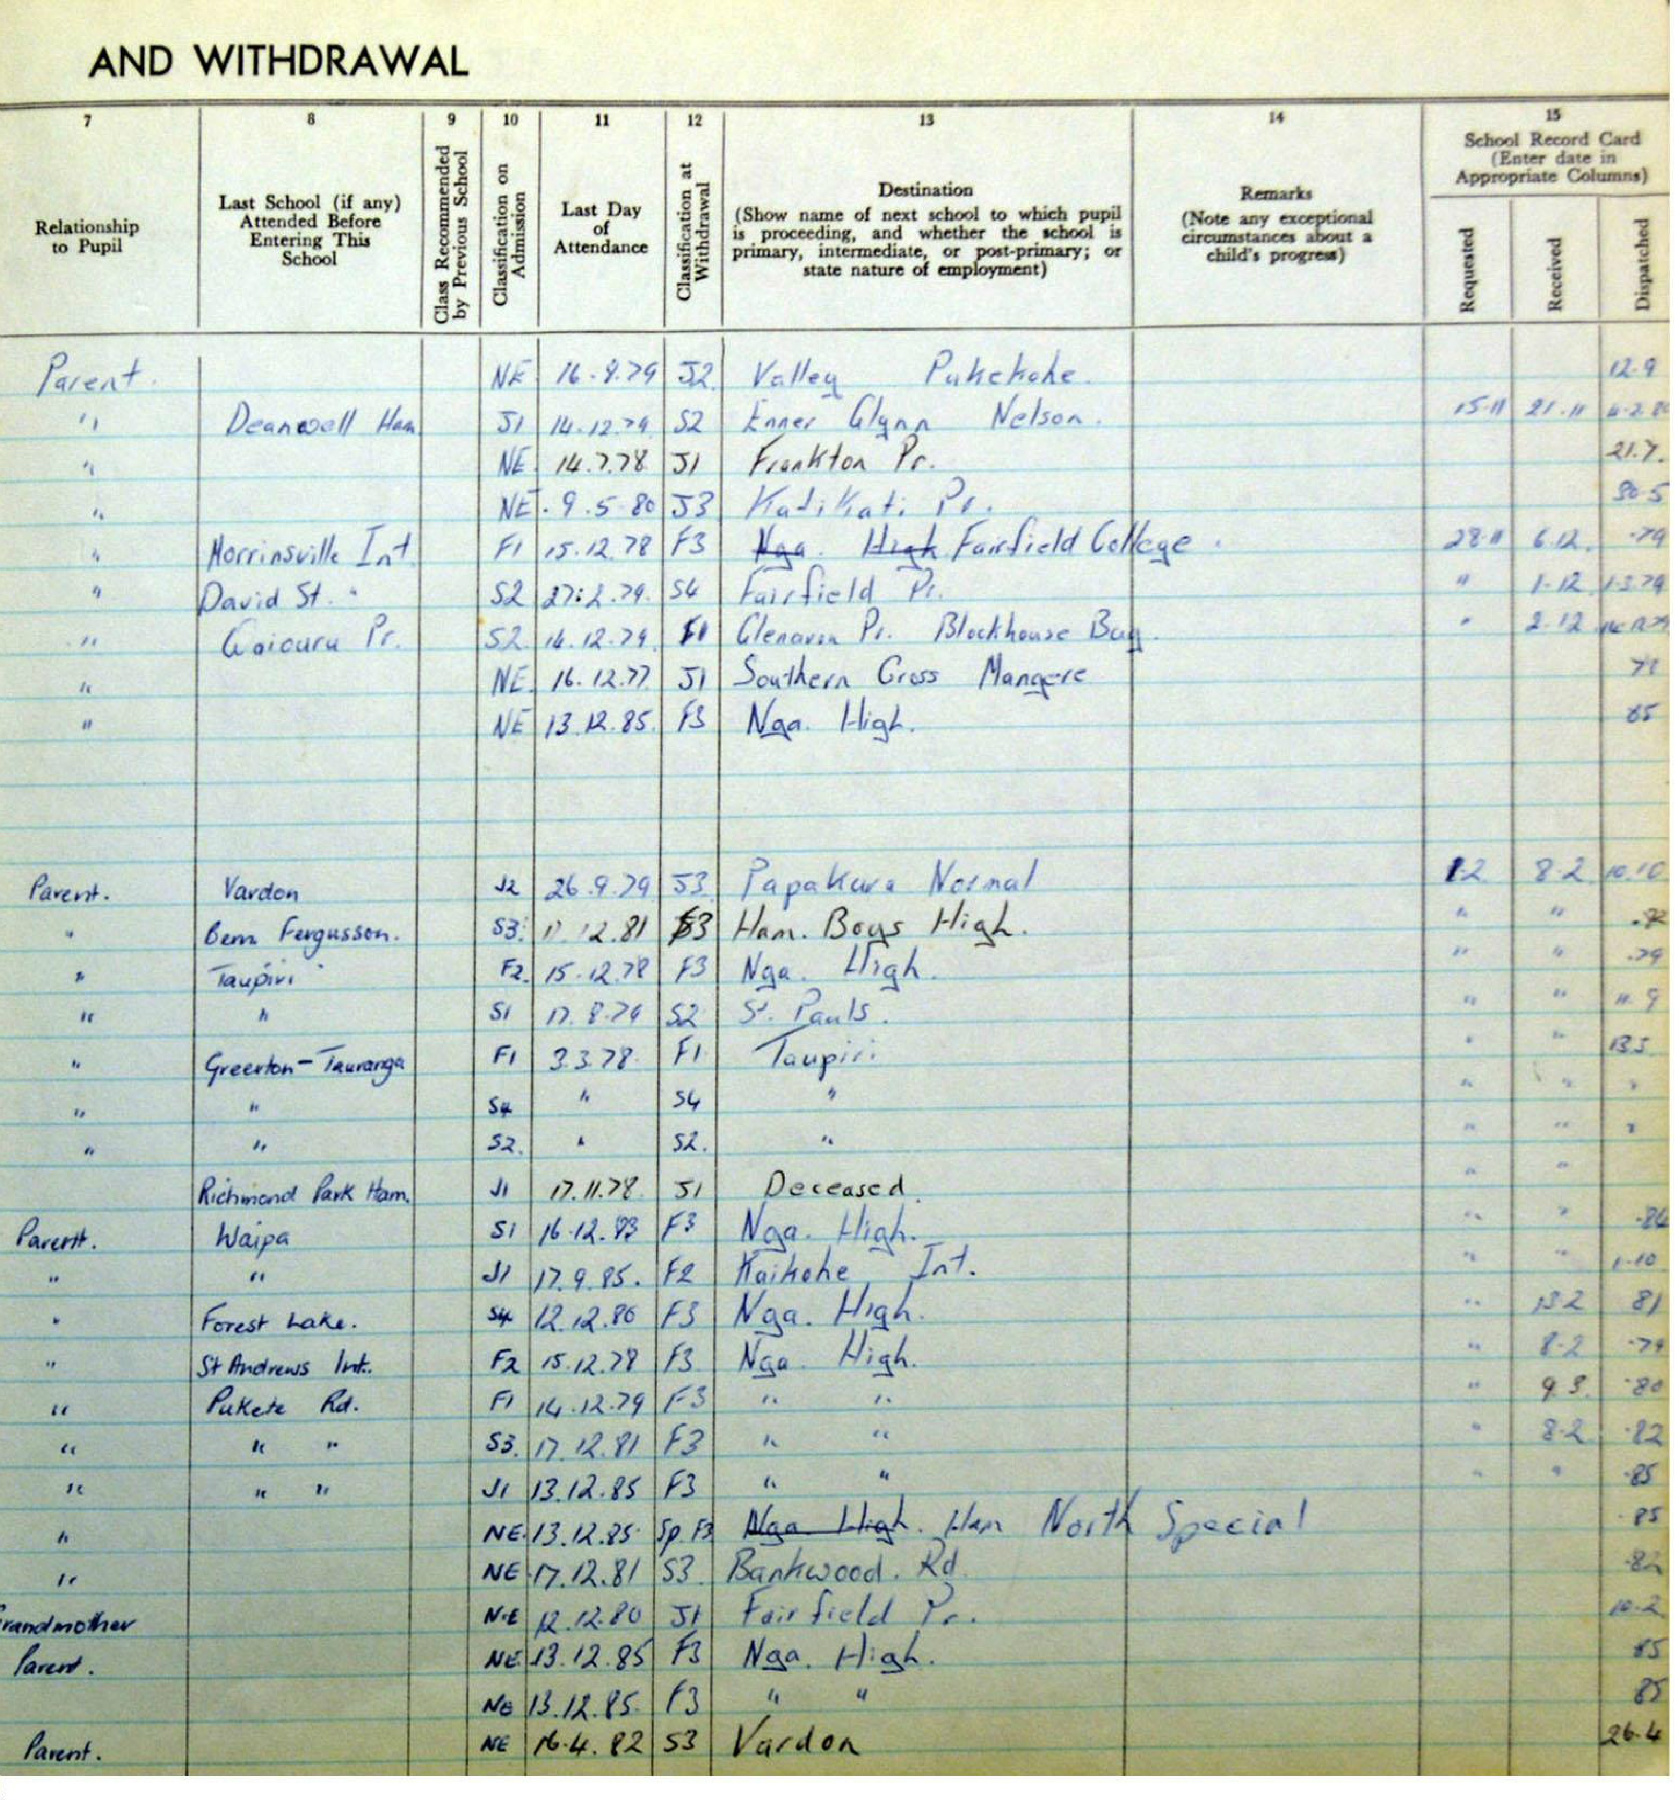 AND WITHDRAWAL
7 8 9 10 11 12 13 14 15
Relationship to Pupil
Last School (if any) Attended Before Entering This School
Class Recommended by Previous School
Classification on Admission
Last Day of Attendance
Classification at Withdrawal
Destination
(Show name of next school to which pupil is proceeding, and whether the school is primary, intermediate, or post-primary; or state nature of employment)
Remarks
(Note any exceptional circumstances about a child's progress)
School Record Card
(Enter date in Appropriate Columns)
Requested Received Dispatched
Parent. NE 16.9.79 J2 Valley Pukekohe. 12.9
" Deanwell Ham J1 14.12.79 S2 Enner Glynn Nelson. 15.11 21.11
" NE 14.7.78 J1 Frankton Pr. 21.7.
" NE. 9.5.80 J3 Katikati Pr. 30.5
" Morrinsville Int F1 15.12.78 F3 Nga. High Fairfield College. 28.11 6.12. .79
" David St. " S2 27.2.79. S4 Fairfield Pr. " 1.12 1.3.79
" Pr. S2 14.12.79. F1 Pr. Blockhouse Bay. " 2.12
" NE. 16.12.77. J1 Southern Cross Mangere
" NE 13.12.85. F3 Nga. High. 85
Parent. Vardon J2 26.9.79 J3 Papakura Normal 1.2 8.2 10.10
" Bern Fergusson. S3. 17.12.81 F3 Ham. Boys High. " "
" Taupiri " F2. 15.12.78 F3 Nga. High. " " .79
" " S1 17.8.79 S2 St. Pauls. " " 11.9
" Greerton - Tauranga F1 3.3.78. F1 Taupiri " " 13.3.
" " S4 " S4 " " " "
" " S2. " S2. " " " "
Richmond Park Ham. J1 17.11.78. J1 Deceased. " "
Parent. Waipa S1 16.12.83 F3 Nga. High. " " .84
" " J1 17.9.85. F2 Kaikohe Int. " " 1.10
" Forest Lake. S4 12.12.80 F3 Nga. High. " 13.2 81
" St Andrews Int. F2 15.12.78 F3 Nga. High. " 8.2 .79
" Pukete Rd. F1 14.12.79 F3 " " " 9.3. .80
" " " S3. 17.12.81 F3 " " " 8.2 .82
" " " J1 13.12.85 F3 " " " " .85
" NE. 13.12.85. Sp. F3 Nga High. Ham North Special 85
" NE 17.12.81 S3. Bankwood. Rd. .82
randmother N.E 12.12.80 J1 Fairfield Pr. 10.2
Parent. NE. 13.12.85 F3 Nga. High. 85
NE 13.12.85. F3 " " 85
Parent. NE 16.4.82 S3 Vardon 26.4